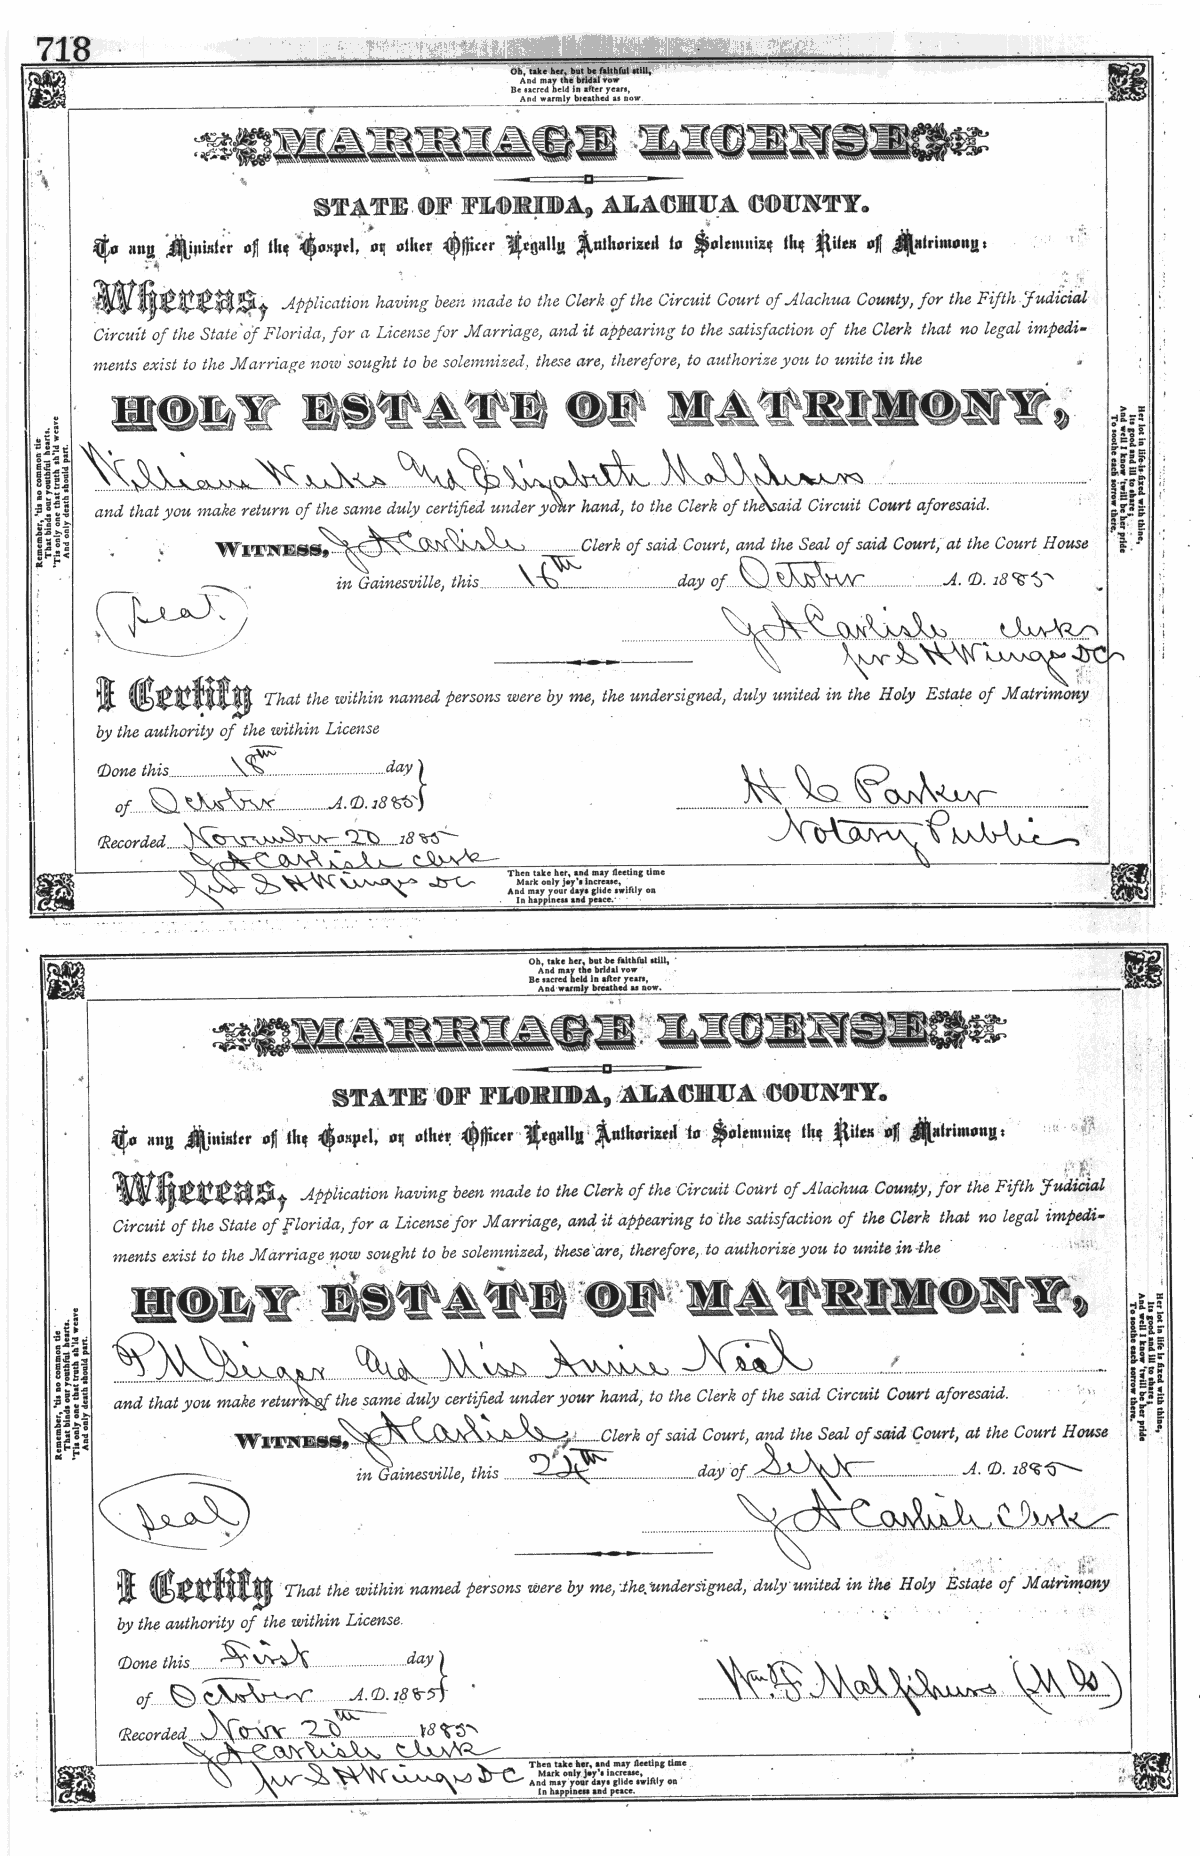 718
Oh, take her, but be faithful still,
And may the bridal vow
Be sacred held in after years,
And warmly breathed as now.
MARRIAGE LICENSE
STATE OF FLORIDA, ALACHUA COUNTY.
To any Minister of the Gospel, or other Officer Legally Authorized to Solemnize the Rites of Matrimony:
Whereas, Application having been made to the Clerk of the Circuit Court of Alachua County, for the Fifth Judicial
Circuit of the State of Florida, for a License for Marriage, and it appearing to the satisfaction of the Clerk that no legal impedi-
ments exist to the Marriage now sought to be solemnized, these are, therefore, to authorize you to unite in the
HOLY ESTATE OF MATRIMONY,
William Weeks and Elizabeth Malphurs
and that you make return of the same duly certified under your hand, to the Clerk of the said Circuit Court aforesaid.
WITNESS, J A Carlisle Clerk of said Court, and the Seal of said Court, at the Court House
in Gainesville, this 16th day of October A. D. 1885
Seal
J A Carlisle Clerk
per S H Wienges DC
I Certify That the within named persons were by me, the undersigned, duly united in the Holy Estate of Matrimony
by the authority of the within License
Done this 18th day
of October A.D. 1885
H C Parker
Notary Public
Recorded November 20 1885
J A Carlisle Clerk
per S H Wienges DC
Remember, 'tis no common tie
That binds our youthful hearts,
'Tis only one that truth sh'ld weave
And only death should part.
Her lot in life is fixed with thine,
Its good and ill to share;
And well I know 'twill be her pride
To soothe each sorrow there.
Then take her, and may fleeting time
Mark only joy's increase,
And may your days glide swiftly on
In happiness and peace.
Oh, take her, but be faithful still,
And may the bridal vow
Be sacred held in after years,
And warmly breathed as now.
MARRIAGE LICENSE
STATE OF FLORIDA, ALACHUA COUNTY.
To any Minister of the Gospel, or other Officer Legally Authorized to Solemnize the Rites of Matrimony:
Whereas, Application having been made to the Clerk of the Circuit Court of Alachua County, for the Fifth Judicial
Circuit of the State of Florida, for a License for Marriage, and it appearing to the satisfaction of the Clerk that no legal impedi-
ments exist to the Marriage now sought to be solemnized, these are, therefore, to authorize you to unite in the
HOLY ESTATE OF MATRIMONY,
P M Geiger and Miss Annie Neal
and that you make return of the same duly certified under your hand, to the Clerk of the said Circuit Court aforesaid.
WITNESS, J A Carlisle, Clerk of said Court, and the Seal of said Court, at the Court House
in Gainesville, this 24th day of Sept A. D. 1885
Seal
J A Carlisle Clerk
I Certify That the within named persons were by me, the undersigned, duly united in the Holy Estate of Matrimony
by the authority of the within License.
Done this First day
of October A.D. 1885
Wm. F. Malphurs (M G)
Recorded Novr 20th 1885
J A Carlisle Clerk
per S H Wienges DC
Remember, 'tis no common tie
That binds our youthful hearts,
'Tis only one that truth sh'ld weave
And only death should part.
Her lot in life is fixed with thine,
Its good and ill to share;
And well I know 'twill be her pride
To soothe each sorrow there.
Then take her, and may fleeting time
Mark only joy's increase,
And may your days glide swiftly on
In happiness and peace.